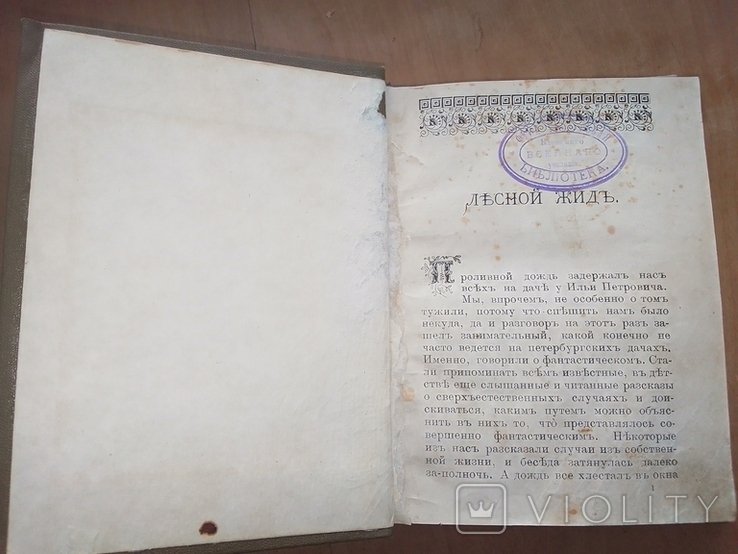 БИБЛІОТЕКА.
ЛѢСНОЙ ЖИДЪ.
Проливной дождь задержалъ насъ
всѣхъ на дачѣ у Ильи Петровича.
Мы, впрочемъ, не особенно о томъ
тужили, потому что спѣшить намъ было
некуда, да и разговоръ на этотъ разъ за-
шелъ занимательный, какой конечно не
часто ведется на петербургскихъ дачахъ.
Именно, говорили о фантастическомъ. Ста-
ли припоминать всѣмъ извѣстные, въ дѣт-
ствѣ еще слышанные и читанные разсказы
о сверхъестественныхъ случаяхъ и дои-
скиваться, какимъ путемъ можно объяс-
нить въ нихъ то, что̀ представлялось со-
вершенно фантастическимъ. Нѣкоторые
изъ насъ разсказали случаи изъ собствен-
ной жизни, и бесѣда затянулась далеко
за-полночь. А дождь все хлесталъ въ окна
VIOLITY